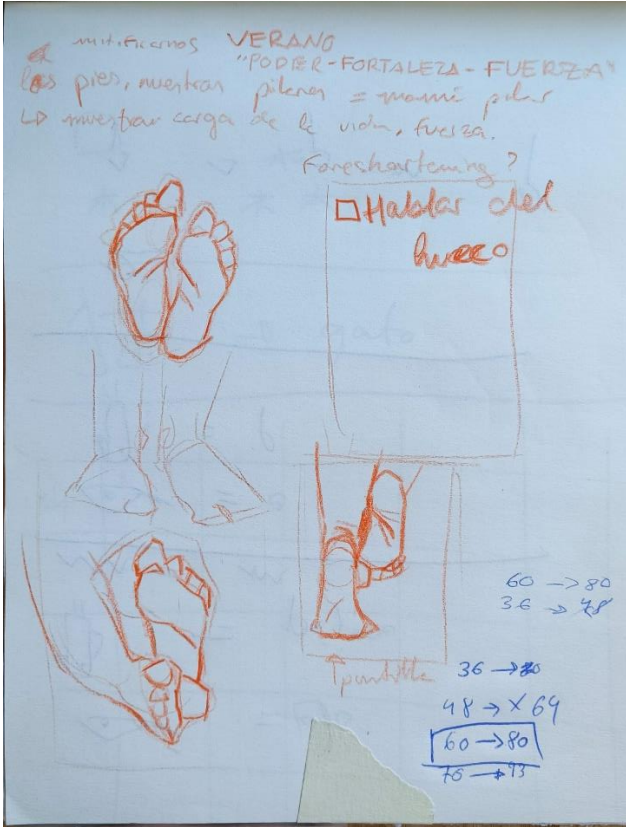 mitificamos VERANO
"PODER-FORTALEZA-FUERZA"
los pies, nuestros pilares = mami pilar
↳ nuestra carga de la vida, fuerza.
Foreshortening?
□ Hablar del
hueco
60 → 80
36 → 48
↑ puntilla
36 →
48 → × 64
60 → 80
76 → 93